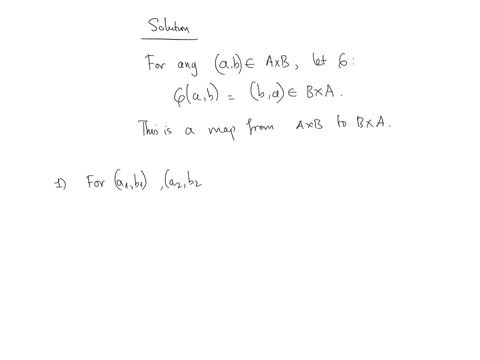 Solution
For any (a,b) ∈ A×B, let φ:
φ(a,b) = (b,a) ∈ B×A.
This is a map from A×B to B×A.
1) For (a1,b1), (a2,b2